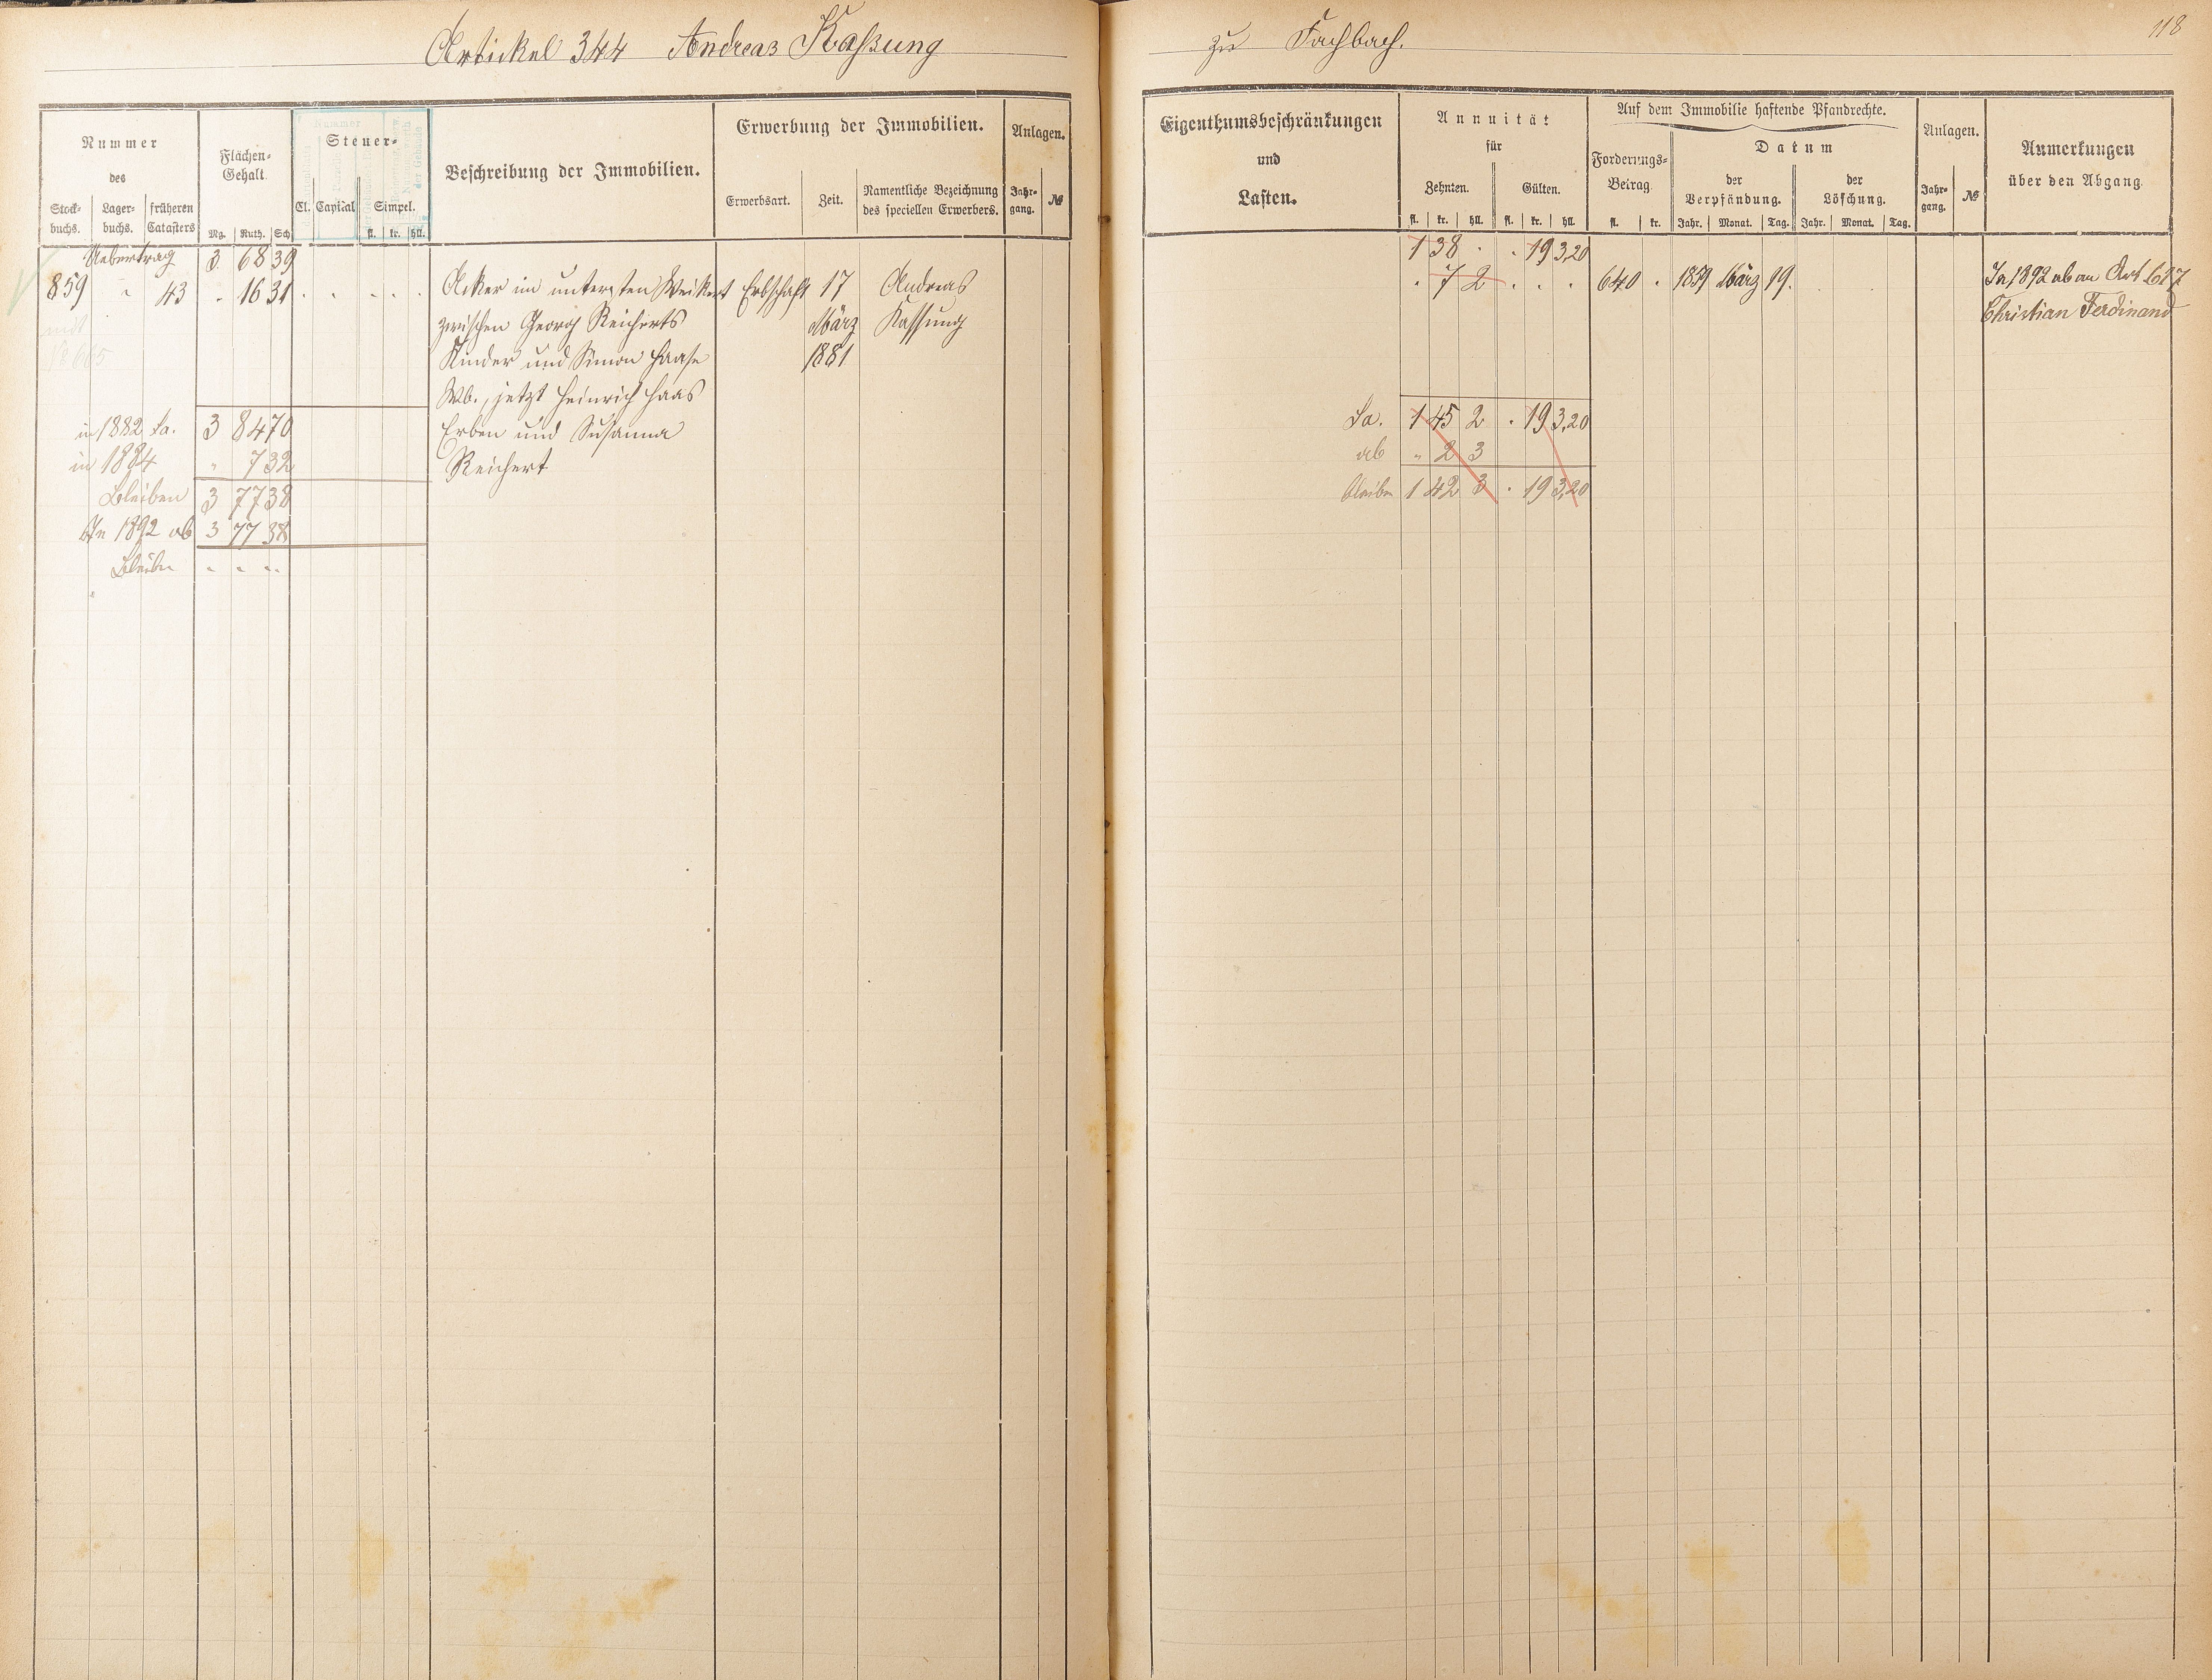 Artickel 344 Andreas Kaßung
zu Fachbach.
118
Nummer
des
Stock-
buchs.
Lager-
buchs.
früheren
Catasters
Flächen-
Gehalt.
Mg. Ruth. Sch
Steuer-
Cl. Capital Simpel.
fl. kr. hll.
Beschreibung der Immobilien.
Erwerbung der Immobilien.
Erwerbsart. Zeit.
Namentliche Bezeichnung
des speciellen Erwerbers.
Anlagen.
Jahr-
gang. №
Uebertrag 3 68 39
859 " 43 . 16 31 . . . . .
Acker im untersten Weikert Erbschaft 17 Andreas
zwischen Georg Reicherts März Kassung
Kinder und Simon Haase 1881
Wb., jetzt Heinrich Haas
Erben und Susanna
Reichert
in 1882 Sa. 3 84 70
in 1884 " 7 32
Bleiben 3 77 38
In 1892 ab 3 77 38
Bleiben " " "
Eigenthumsbeschränkungen
und
Lasten.
Annuität
für
Zehnten. Gülten.
fl. kr. hll. fl. kr. hll.
Auf dem Immobilie haftende Pfandrechte.
Forderungs-
Betrag.
fl. kr.
Datum
der
Verpfändung.
der
Löschung.
Jahr. Monat. Tag. Jahr. Monat. Tag.
Anlagen.
Jahr-
gang. №
Anmerkungen
über den Abgang.
1 38 . . 19 3,20
. 7 2 . . . 640 . 1859 März 19.
In 1892 ab an Art 617
Christian Ferdinand
Sa. 1 45 2 . 19 3,20
ab " 2 3
bleiben 1 42 3 . 19 3,20